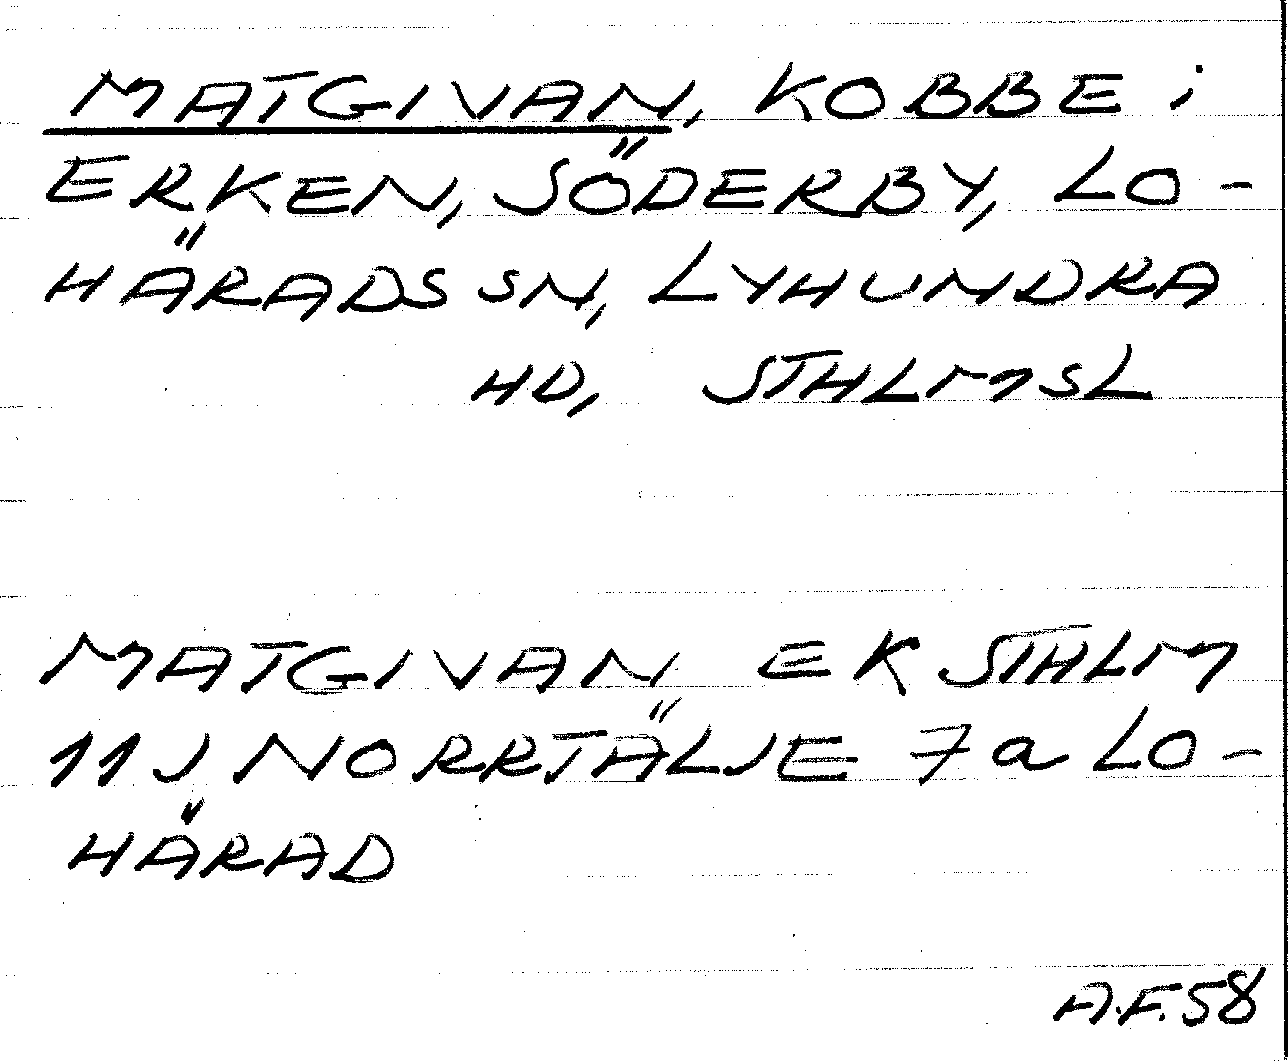 MATGIVAN, KOBBE i
ERKEN, SÖDERBY, LO-
HÄRADS SN, LYHUNDRA
HD, STHLMSL
MATGIVAN EK STHLM
11J NORRTÄLJE 7a LO-
HÄRAD
A.F. 58